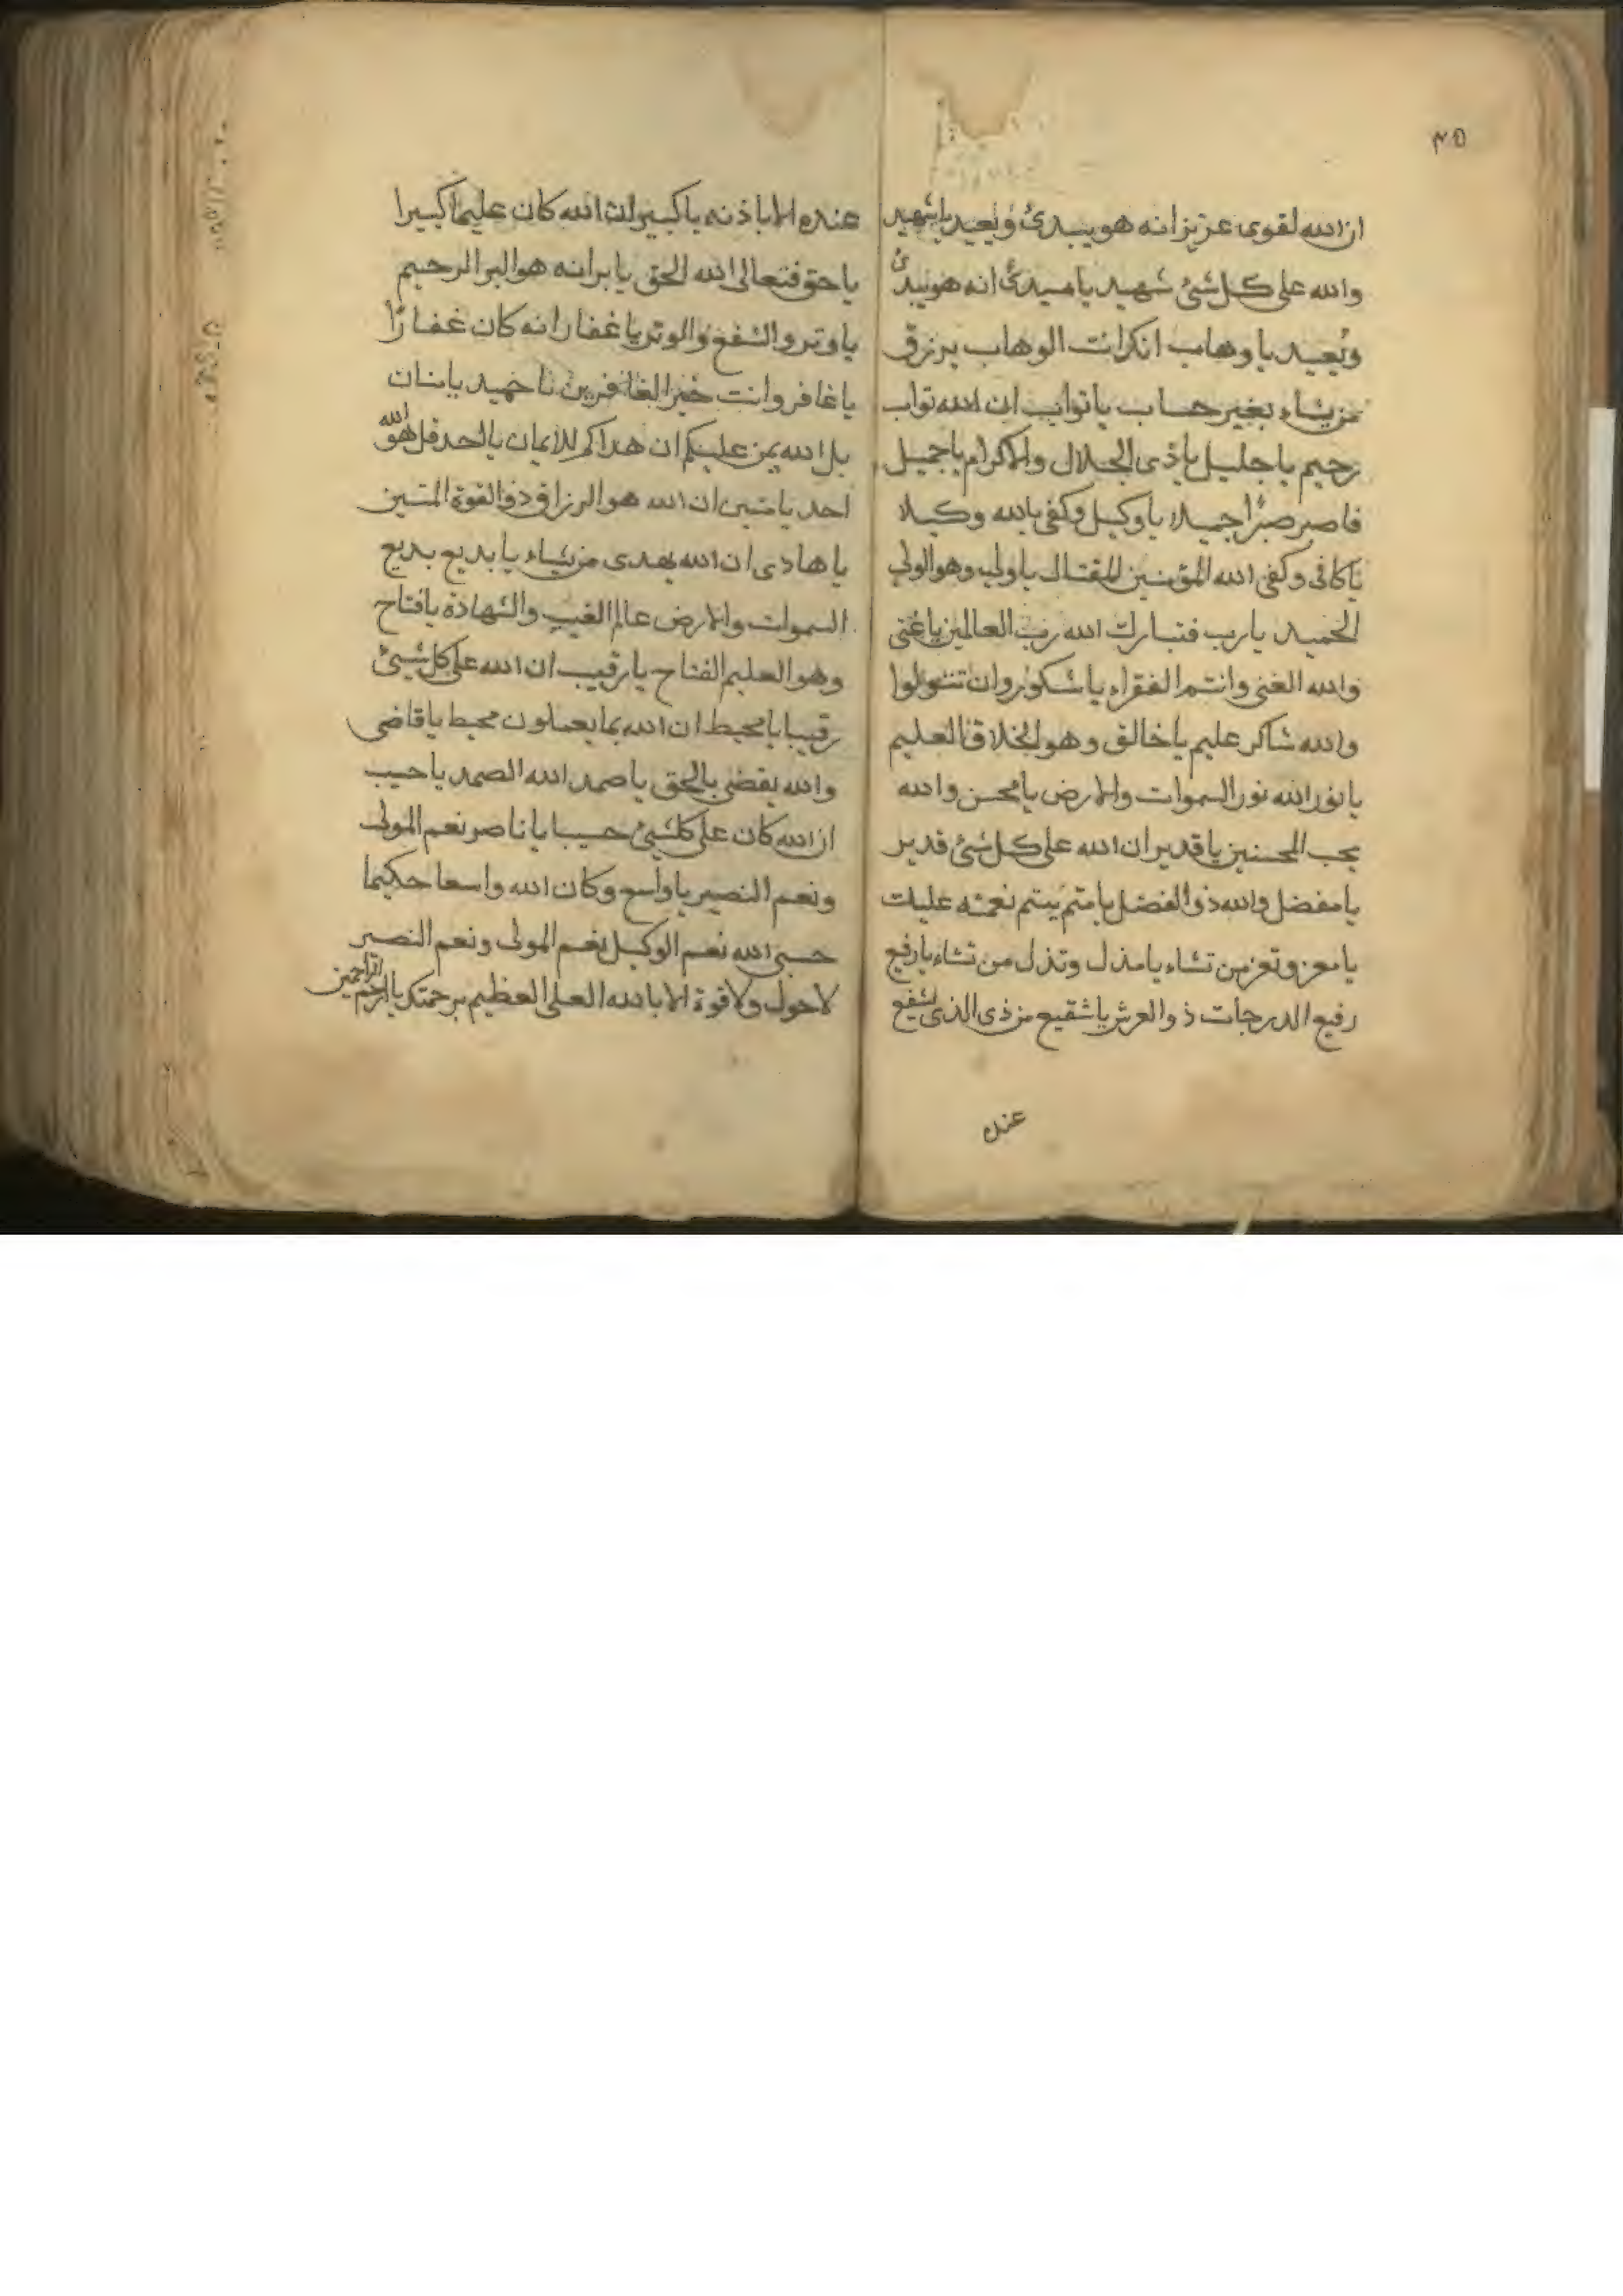 ٤٥
ان الله لقوى عزيز انه هو يبدئ ويعيد يا شهيد
والله على كل شئ شهيد يا مبدئ انه هو يبدئ
ويعيد يا وهاب انك انت الوهاب يرزق
من يشاء بغير حساب يا تواب ان الله تواب
رحيم يا جليل يا ذى الجلال والاكرام يا جميل
فاصبر صبرا جميلا يا وكيل وكفى بالله وكيلا
يا كافى وكفى الله المؤمنين القتال يا ولى وهو الولى
الحميد يا رب فتبارك الله رب العالمين يا غنى
والله الغنى وانتم الفقراء يا شكور وان تتولوا
والله شاكر عليم يا خالق وهو الخلاق العليم
يا نور الله نور السموات والارض يا محسن والله
يحب المحسنين يا قدير ان الله على كل شئ قدير
يا مفضل والله ذو الفضل يا متم يتم نعمته عليك
يا معز وتعز من تشاء يا مذل وتذل من تشاء يا رفيع
رفيع الدرجات ذو العرش يا شفيع من ذى الذى يشفع
عنده
عنده الا باذنه يا كبير ان الله كان عليما كبيرا
يا حق فتعالى الله الحق يا بر انه هو البر الرحيم
يا وتر والشفع والوتر يا غفار انه كان غفارا
يا غافر وانت خير الغافرين يا حميد يا منان
بل الله يمن عليكم ان هداكم للايمان يا احد قل هو الله
احد يا متين ان الله هو الرزاق ذو القوة المتين
يا هادى ان الله يهدى من يشاء يا بديع بديع
السموات والارض عالم الغيب والشهادة يا فتاح
وهو العليم الفتاح يا رقيب ان الله على كل شئ
رقيبا يا محيط ان الله بما يعملون محيط يا قاضى
والله يقضى بالحق يا صمد الله الصمد يا حسيب
ان الله كان على كلشئ حسيبا يا ناصر نعم المولى
ونعم النصير يا واسع وكان الله واسعا حكيما
حسبى الله نعم الوكيل نعم المولى ونعم النصير
لا حول ولا قوة الا بالله العلى العظيم برحمتك يا ارحم الراحمين